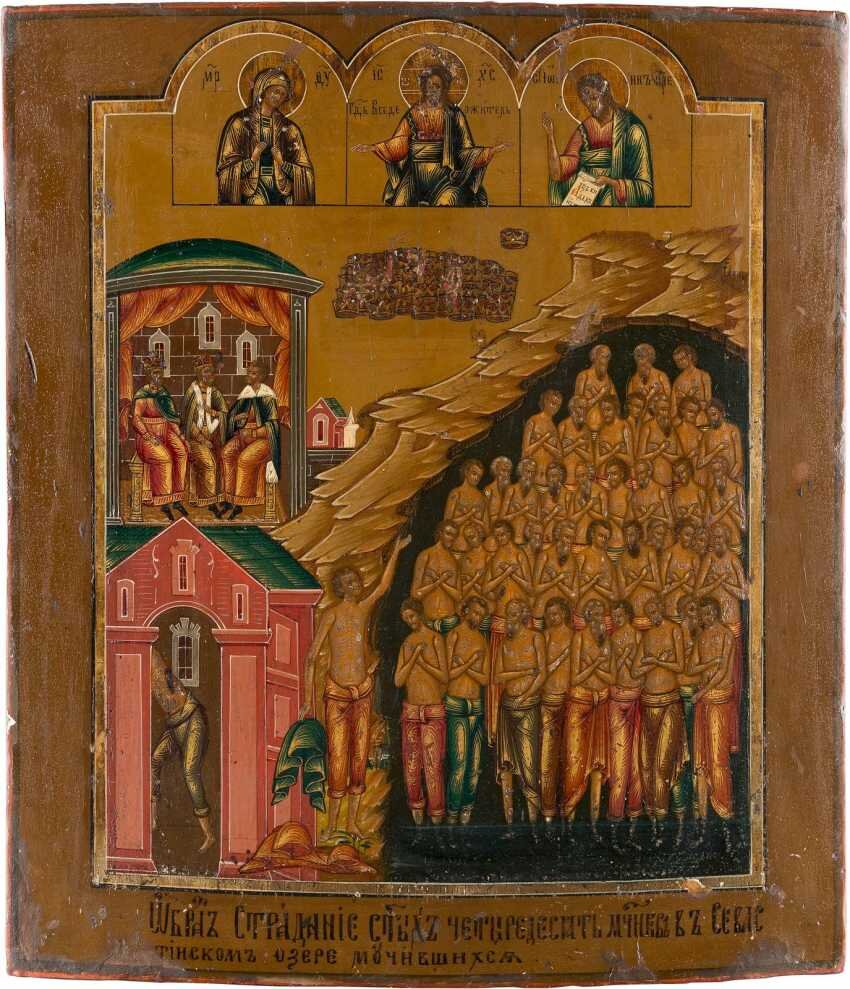 М҃Р Ѳ҃У
І҃С Х҃С
Гд҃ь Вседержитель
С҃ Іѡ҃
Ѡбра҃ъ Страданіе ст҃ыхъ четыредесять мч҃никъ въ Севас
тінскомъ озере мучившихся